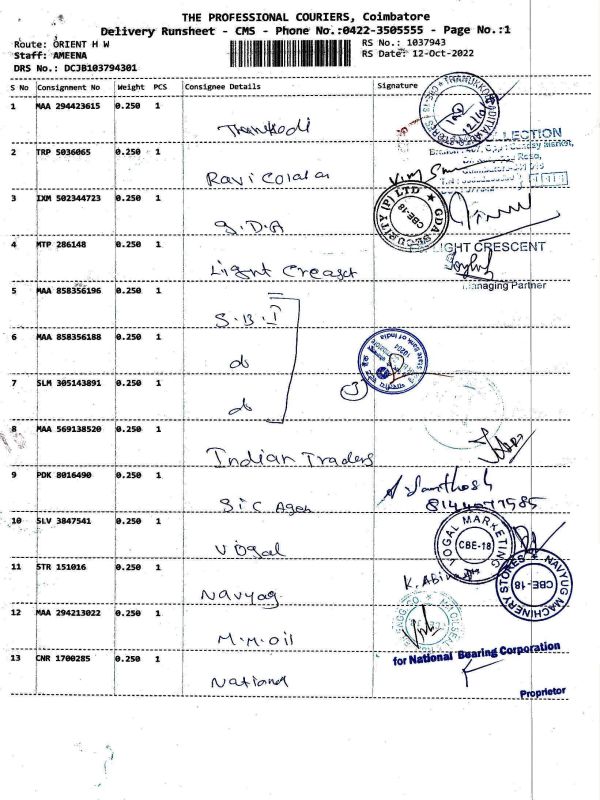 THE PROFESSIONAL COURIERS, Coimbatore
Delivery Runsheet - CMS - Phone No.:0422-3505555 - Page No.:1
Route: ORIENT H W
RS No.: 1037943
Staff: AMEENA
RS Date: 12-Oct-2022
DRS No.: DCJB103794301
S No Consignment No Weight PCS Consignee Details Signature
1 MAA 294423615 0.250 1
2 TRP 5036065 0.250 1
Ravi
3 IXM 502344723 0.250 1
G.D.A
GDA SECURITY (P) LTD
CBE-18
4 MTP 286148 0.250 1
Light Cresast
LIGHT CRESCENT
Managing Partner
5 MAA 858356196 0.250 1
S.B.I
6 MAA 858356188 0.250 1
do
State Bank of India
7 SLM 305143891 0.250 1
do
3
8 MAA 569138520 0.250 1
Indian Traders
9 PDK 8016490 0.250 1
SIC Agen
Santhosh
8144077585
10 SLV 3847541 0.250 1
Vogal
VOGAL MARKETING
CBE-18
11 STR 151016 0.250 1
Navyag
K. Abi
NAVYUG MACHINERY STORES
CBE-18
12 MAA 294213022 0.250 1
M.M.oil
for National Bearing Corporation
13 CNR 1700285 0.250 1
National
Proprietor